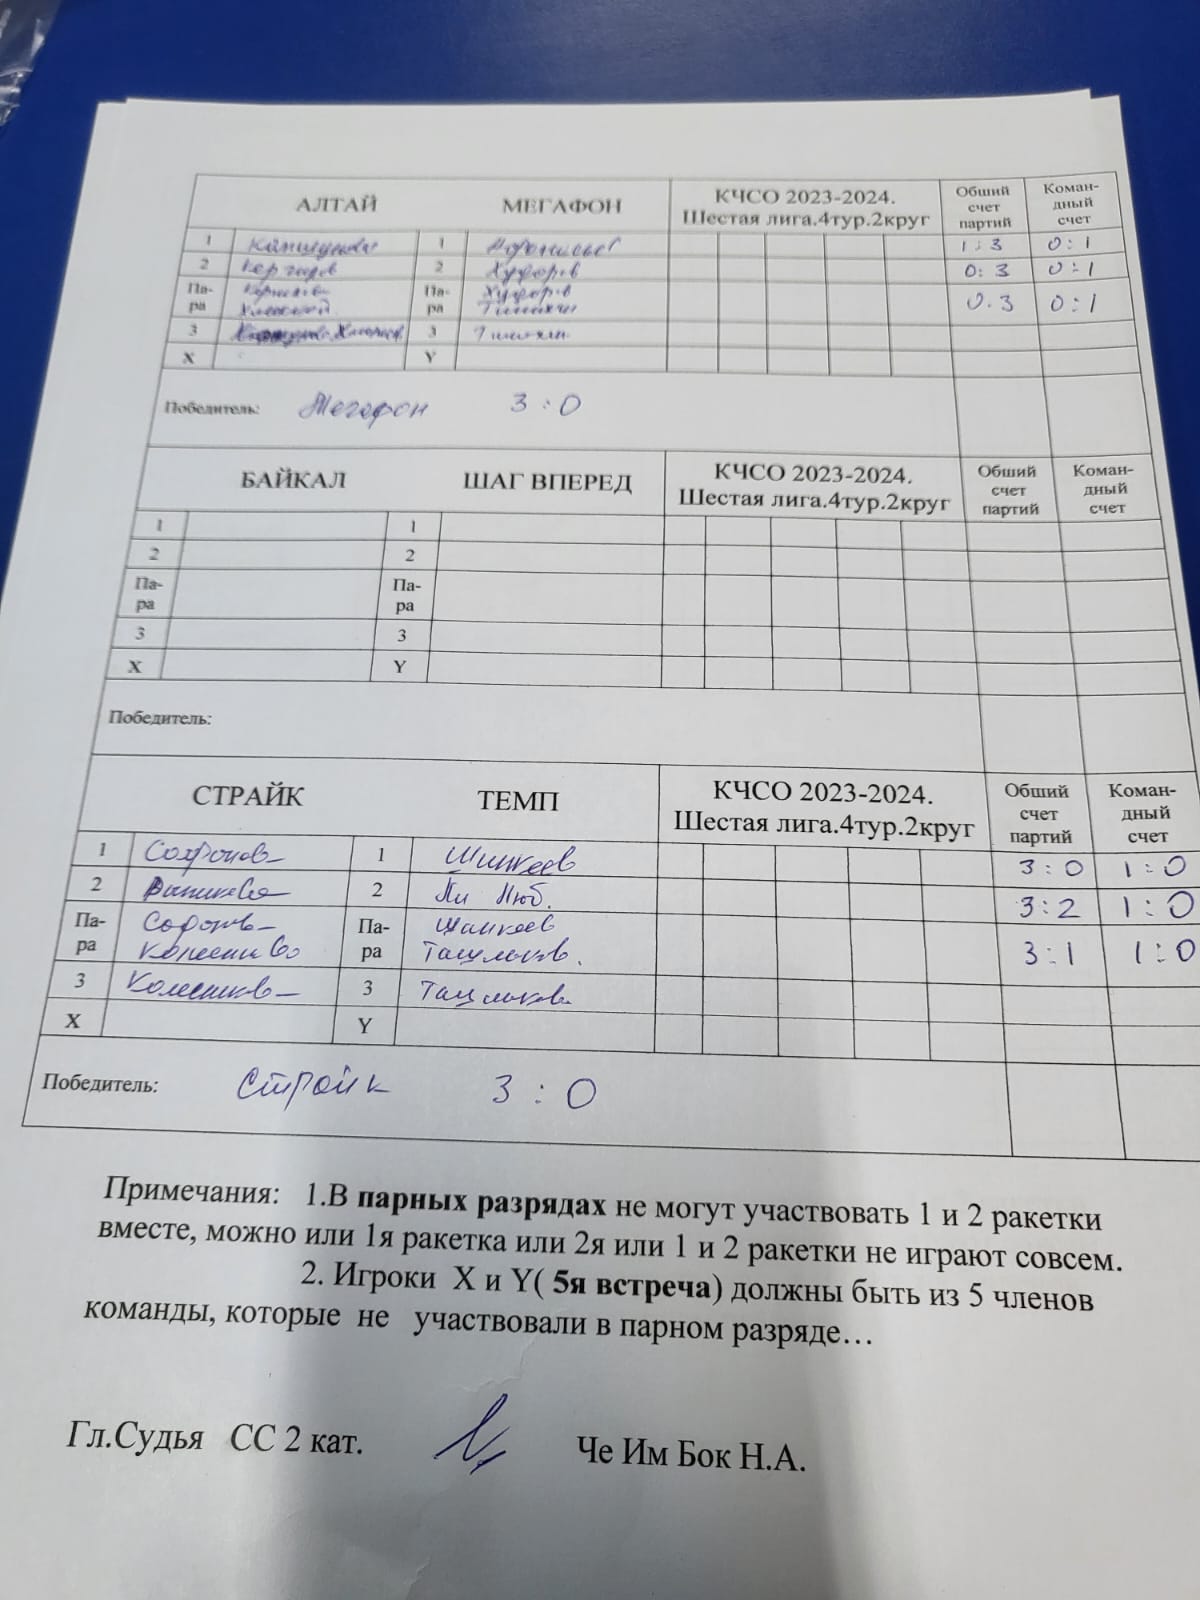 АЛТАЙ МЕГАФОН КЧСО 2023-2024. Шестая лига.4тур.2круг Обший счет партий Коман-дный счет
1 1 1:3 0:1
2 2 Худоров 0:3 0:1
Па-ра Па-ра Худоров 0:3 0:1
3 3
X Y
Победитель: Мегафон 3:0
БАЙКАЛ ШАГ ВПЕРЕД КЧСО 2023-2024. Шестая лига.4тур.2круг Обший счет партий Коман-дный счет
1 1
2 2
Па-ра Па-ра
3 3
X Y
Победитель:
СТРАЙК ТЕМП КЧСО 2023-2024. Шестая лига.4тур.2круг Обший счет партий Коман-дный счет
1 1 3:0 1:0
2 2 Ли Люб. 3:2 1:0
Па-ра Па-ра 3:1 1:0
3 Колесников 3
X Y
Победитель: Страйк 3:0
Примечания: 1.В парных разрядах не могут участвовать 1 и 2 ракетки
вместе, можно или 1я ракетка или 2я или 1 и 2 ракетки не играют совсем.
2. Игроки X и Y( 5я встреча) должны быть из 5 членов
команды, которые не участвовали в парном разряде…
Гл.Судья СС 2 кат. Че Им Бок Н.А.